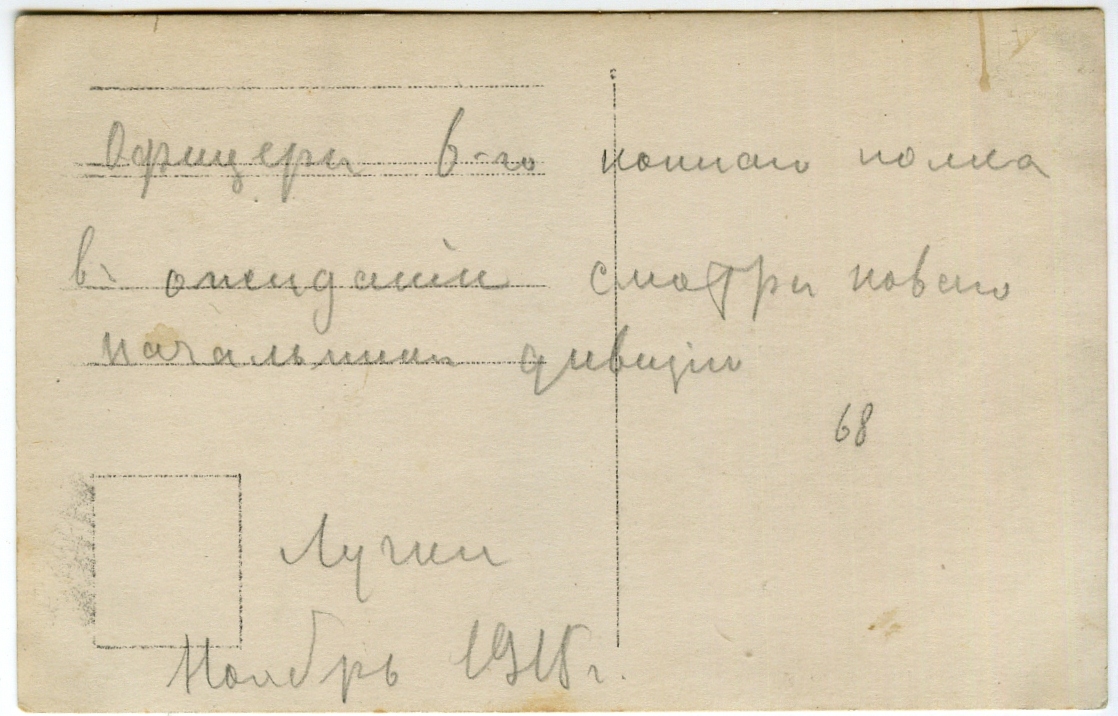 Офицеры 6-го коннаго полка
въ ожиданіи смотры новаго
начальника дивизіи
68
Лучки
Ноябрь 1915 г.